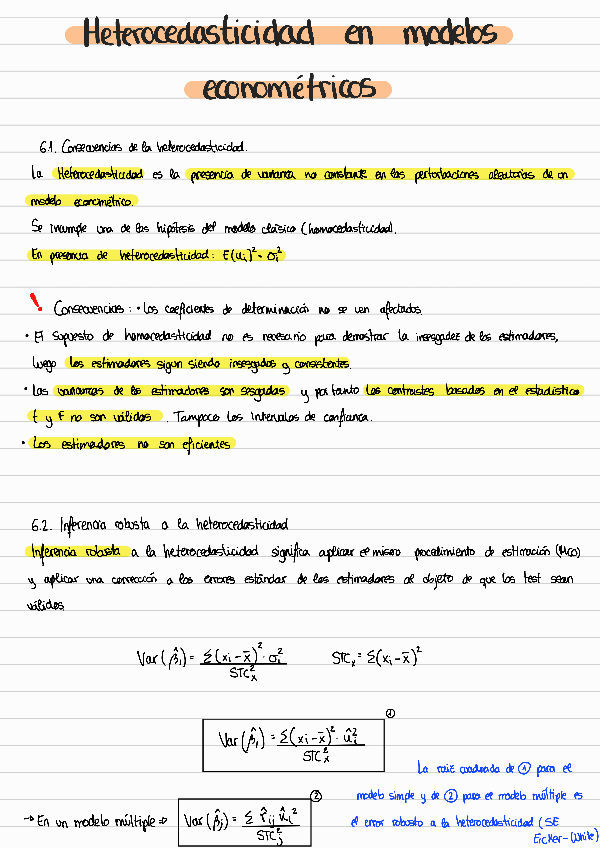 Heterocedasticidad en modelos
econométricos
6.1. Consecuencias de la heterocedasticidad.
La Heterocedasticidad es la presencia de varianza no constante en las perturbaciones aleatorias de un
modelo econométrico.
Se incumple una de las hipótesis del modelo clásico (homocedasticidad).
En presencia de heterocedasticidad: E(ui)² = σi²
! Consecuencias: • Los coeficientes de determinación no se ven afectados.
• El supuesto de homocedasticidad no es necesario para demostrar la insesgadez de los estimadores,
luego los estimadores sigun siendo insesgados y consistentes.
• Las varianzas de los estimadores son sesgadas y por tanto los contrastes basados en el estadístico
t y F no son válidos. Tampoco los intervalos de confianza.
• Los estimadores no son eficientes
6.2. Inferencia robusta a la heterocedasticidad
Inferencia robusta a la heterocedasticidad significa aplicar el mismo procedimiento de estimación (MCO)
y aplicar una corrección a los errores estándar de los estimadores al objeto de que los test sean
válidos.
Var(β̂1) = Σ(xi - x̄)² · σi² / STCx² STCx = Σ(xi - x̄)²
Var(β̂1) = Σ(xi - x̄)² · ûi² / STCx² ①
La raiz cuadrada de ① para el
modelo simple y de ② para el modelo múltiple es
el error robusto a la heterocedasticidad (SE
Eicker-(White)
→ En un modelo múltiple ⇒ Var(β̂j) = Σ r̂ij ûi² / STCj² ②